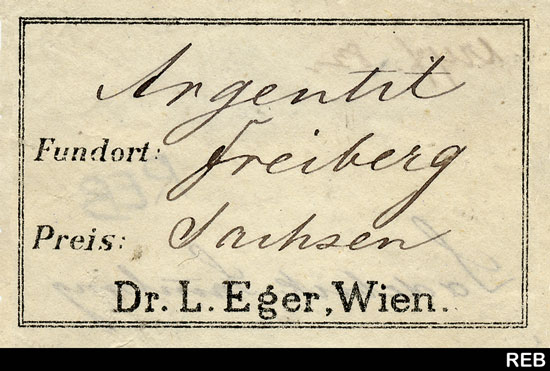 Argentit
Fundort: Freiberg
Preis: Sachsen
Dr. L. Eger, Wien.
REB